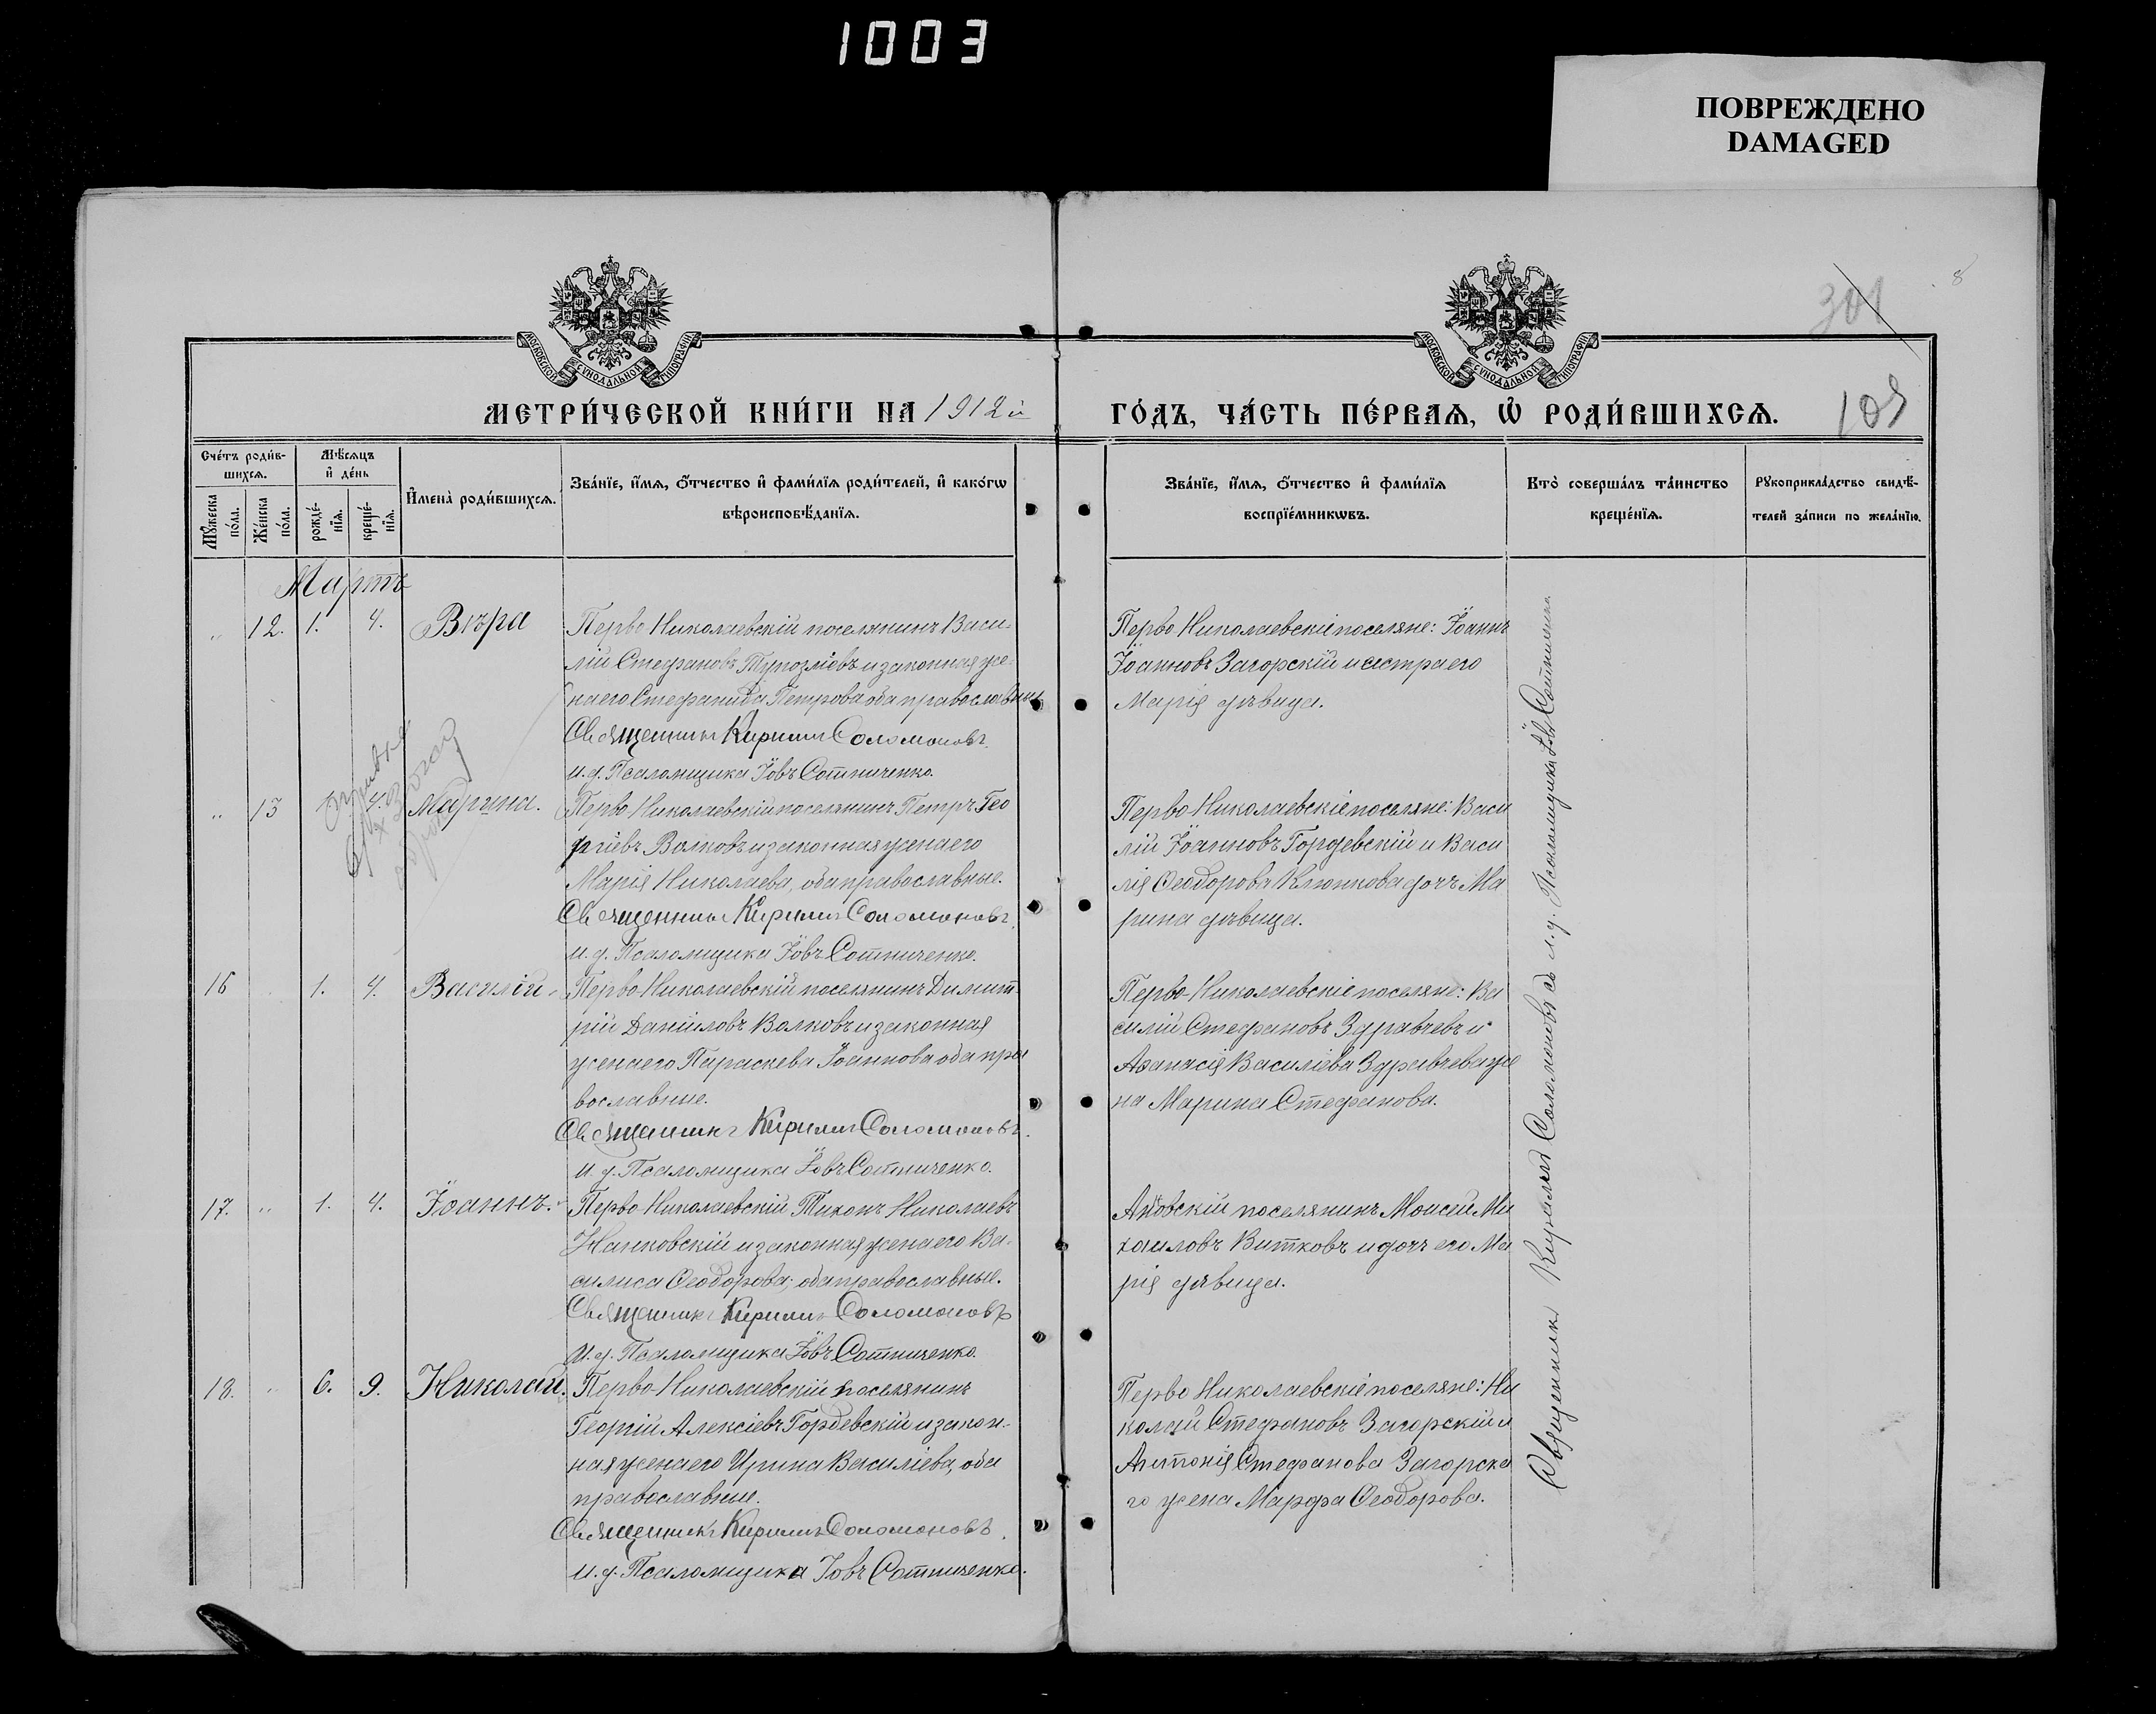 1003
ПОВРЕЖДЕНО
DAMAGED
301
8
МОСКОВСКОЙ СѴНОДАЛЬНОЙ ТИПОГРАФІИ
МОСКОВСКОЙ СѴНОДАЛЬНОЙ ТИПОГРАФІИ
МЕТРИ́ЧЕСКОЙ КНИ́ГИ НА 1912й
ГО́ДЪ, ЧА́СТЬ ПЕ́РВАЯ, Ѡ҆ РОДИ́ВШИХСѦ.
Сче́тъ роди́в-
шихсѧ.
Мꙋ́жеска по́ла.
Же́нска по́ла.
Мѣ́сѧцъ
и҆ де́нь
рожде́-нїѧ.
креще́-нїѧ.
И҆мена̀ роди́вшихсѧ.
Зва́нїе, и҆́мѧ, ѻ҆́тчество и҆ фами́лїѧ роди́телей, и҆ како́гѡ
вѣроисповѣ́данїѧ.
Зва́нїе, и҆́мѧ, ѻ҆́тчество и҆ фами́лїѧ
воспрїе́мникѡвъ.
Кто̀ соверша́лъ та́инство
креще́нїѧ.
Рꙋкоприкла́дство свидѣ́-
телей за́писи по жела́нїю.
Мартъ
" 12. 1. 4. Вѣра
Перво Николаевскій поселянинъ Васи-
лій Стефановъ Тупозліевъ и законная же-
на его Стефанида Петрова оба православные
Священникъ Кириллъ Соломоновъ.
И. д. Псаломщика Іовъ Сотниченко.
Перво Николаевскіе поселяне: Іоаннъ
Іоанновъ Загорскій и сестра его
Марія дѣвица.
" 13 4. Марина.
Перво Николаевскій поселянинъ Петръ Гео
ргіевъ Волковъ и законная жена его
Марія Николаева, оба православные.
Священникъ Кириллъ Соломоновъ.
И. д. Псаломщика Іовъ Сотниченко.
Перво Николаевскіе поселяне: Васи
лій Іоанновъ Гордевскій и Васи
лія Ѳеодорова Клюнкова дочь Ма
рина дѣвица.
16 1. 4. Василій.
Перво Николаевскій поселянинъ Димит-
рій Даніиловъ Волковъ и законная
жена его Параскева Іоаннова оба пра
вославные.
Священникъ Кириллъ Соломоновъ.
И. д. Псаломщика Іовъ Сотниченко.
Перво-Николаевскіе поселяне: Ва
силій Стефановъ Здравчевъ и
Аѳанасія Василіева Здравчева же
на Марина Стефанова.
17. " 1. 4. Іоаннъ.
Перво Николаевскій Тихонъ Николаевъ
Нанковскій и законная жена его Ва-
силиса Ѳеодорова, оба православные.
Священникъ Кириллъ Соломоновъ
И. д. Псаломщика Іовъ Сотниченко.
поселянинъ Моисей Ми
хаиловъ Витковъ и дочь его Ма
рія дѣвица.
18. " 6. 9. Николай.
Перво-Николаевскій поселянинъ
Георгій Алексіевъ Гордевскій и закон-
ная жена его Ирина Василіева, оба
православные.
Священникъ Кириллъ Соломоновъ.
И. д. Псаломщика Іовъ Сотниченко.
Перво Николаевскіе поселяне: Ни
колай Стефановъ Загорскій и
Антонія Стефанова Загорска
го жена Марфа Ѳеодорова.
Священникъ Кириллъ Соломоновъ съ и. д. Псаломщика Іовъ Сотниченко